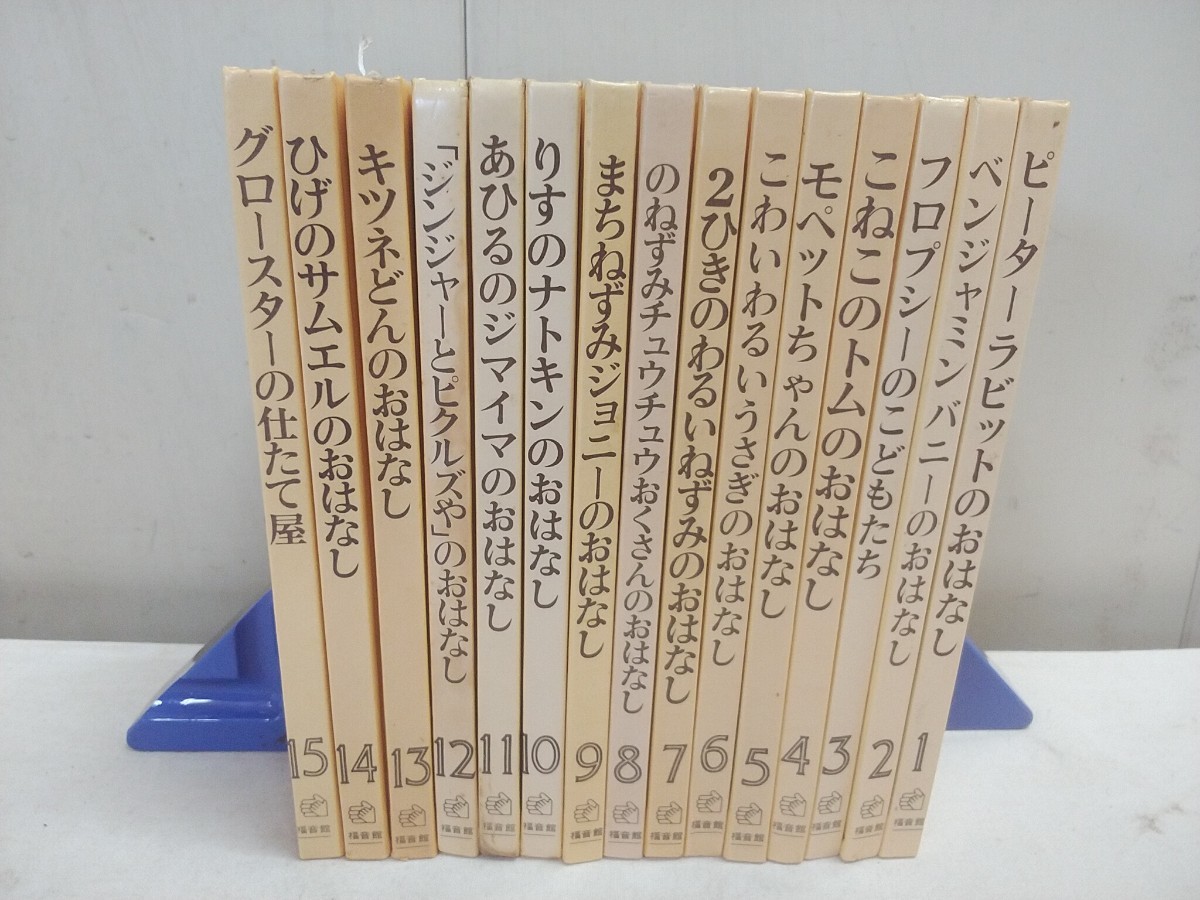 ピーターラビットのおはなし
1
福音館
ベンジャミン バニーのおはなし
2
福音館
フロプシーのこどもたち
3
福音館
こねこのトムのおはなし
4
福音館
モペットちゃんのおはなし
5
福音館
こわいわるいうさぎのおはなし
6
福音館
2ひきのわるいねずみのおはなし
7
福音館
のねずみチュウチュウおくさんのおはなし
8
福音館
まちねずみジョニーのおはなし
9
福音館
りすのナトキンのおはなし
10
福音館
あひるのジマイマのおはなし
11
福音館
「ジンジャーとピクルズや」のおはなし
12
福音館
キツネどんのおはなし
13
福音館
ひげのサムエルのおはなし
14
福音館
グロースターの仕たて屋
15
福音館